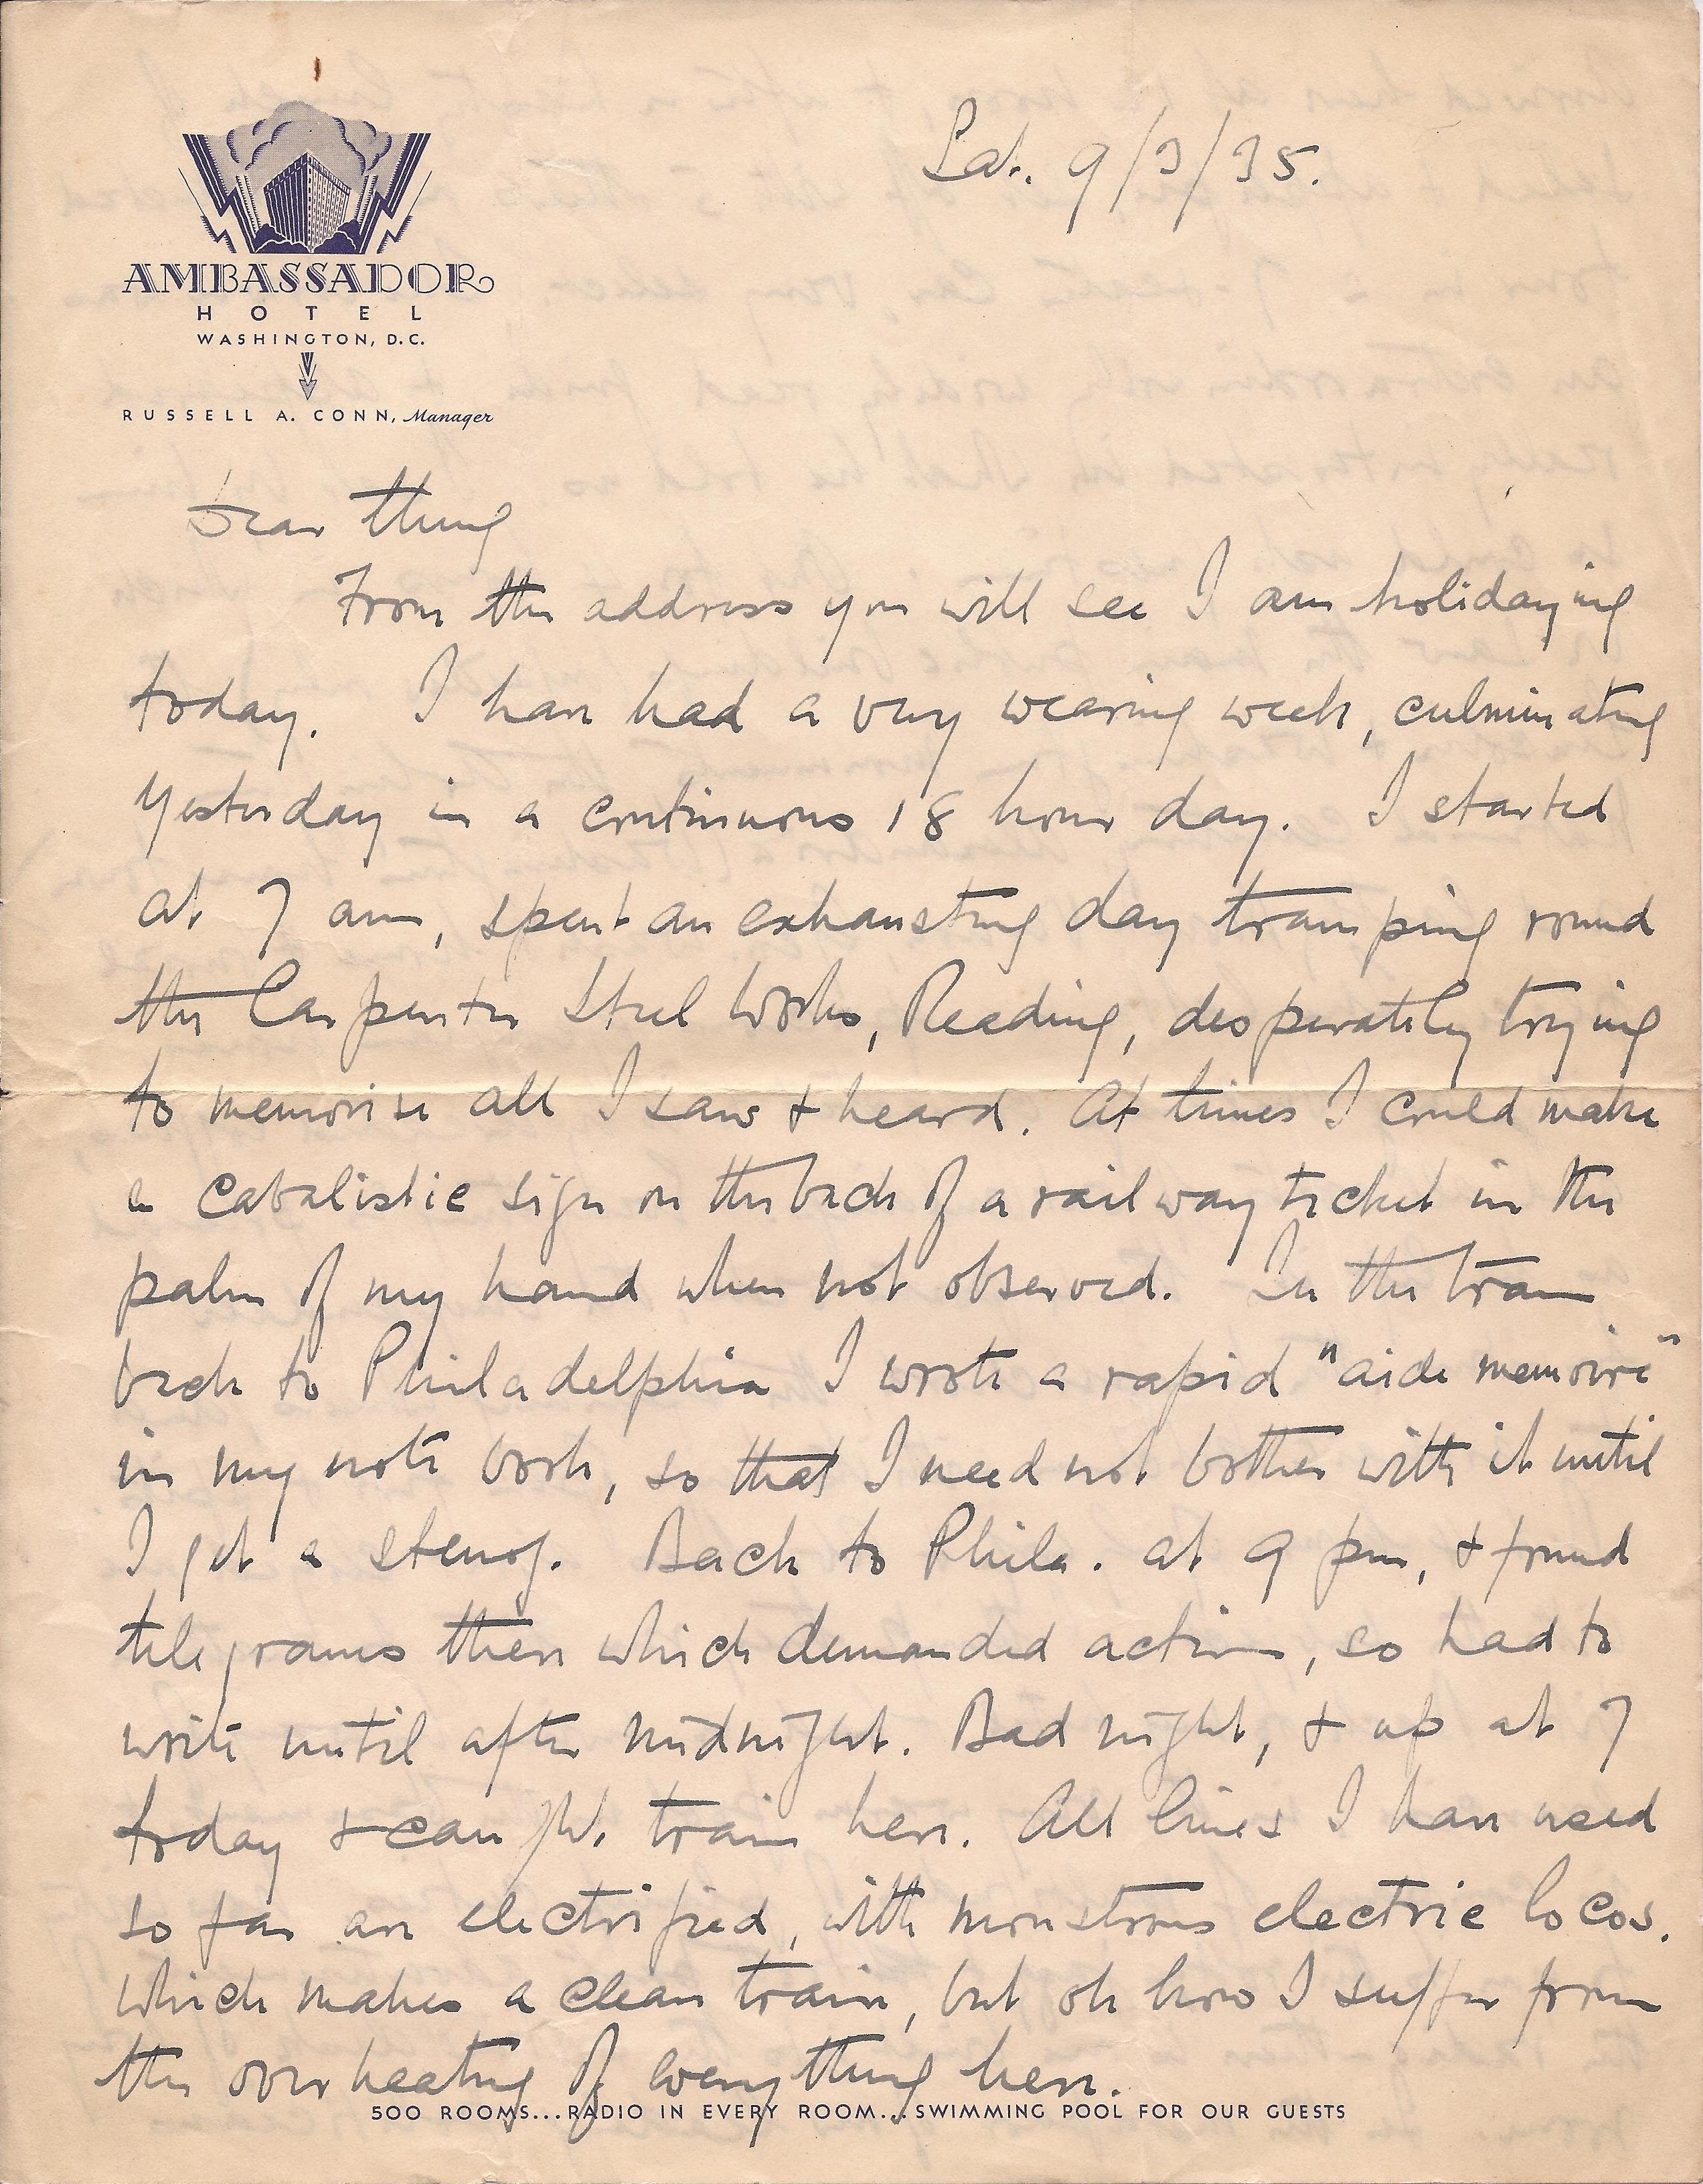 Sat. 9/3/35.
AMBASSADOR
HOTEL
WASHINGTON, D.C.
RUSSELL A. CONN, Manager
Dear Thing
From the address you will see I am holidaying
today. I have had a very wearing week, culminating
yesterday in a continuous 18 hour day. I started
at 7 am, spent an exhausting day tramping round
the Carpenter Steel Works, Reading, desperately trying
to memorise all I saw & heard. At times I could make
a cabalistic sign on the back of a railway ticket in the
palm of my hand when not observed. In the train
back to Philadelphia I wrote a rapid "aide memoire"
in my note book, so that I need not bother with it until
I get a stenog. Back to Phila. at 9 pm, & found
telegrams there which demanded action, so had to
write until after midnight. Bad night, & up at 7
today & caught train here. All lines I have used
so far are electrified, with monstrous electric locos.
which makes a clean train, but oh how I suffer from
the overheating of everything here.
500 ROOMS...RADIO IN EVERY ROOM...SWIMMING POOL FOR OUR GUESTS